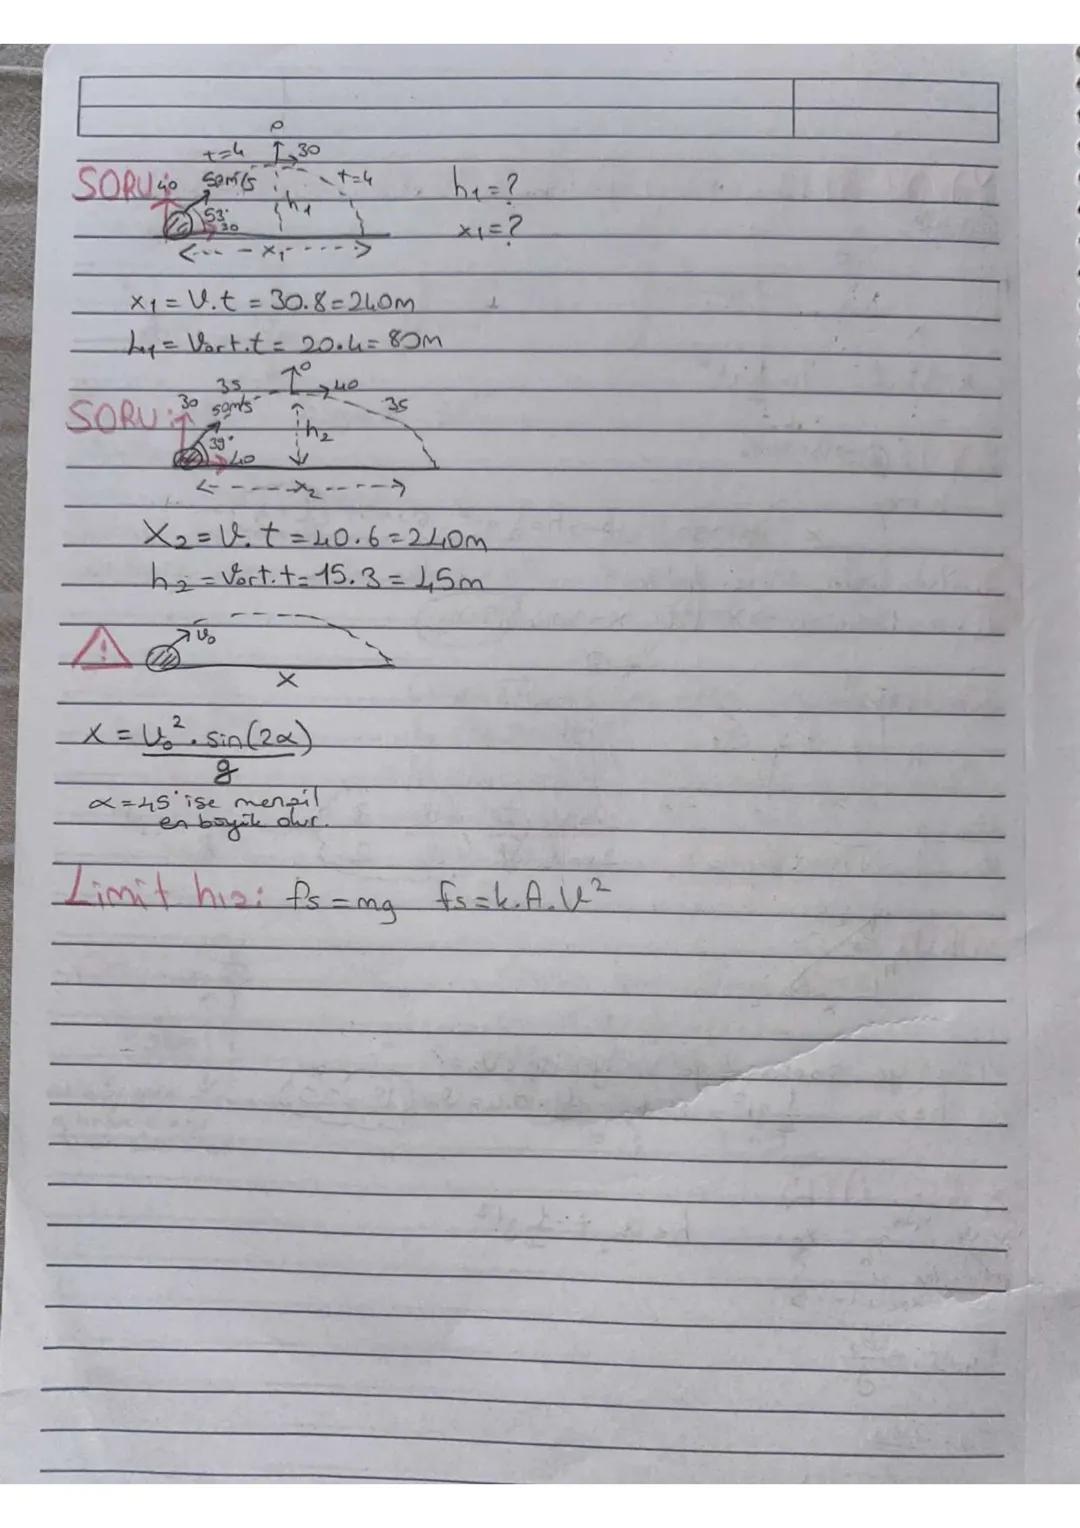 0
t=4 30
SORU: 40 50m/s t=4 h₁=?
53° h₁
30 x₁=?
x₁
x₁ = V.t = 30.8=240m
h₁ = Vort.t = 20.4= 80m
0
35 40
SORU: 30 50m/s 3s
h₂
39° 40
x₂
X₂ = V.t = 40.6 = 240m
h₂ = Vort.t = 15.3 = 45m
! V₀
x
x = V₀².sin(2α)
g
α=45° ise menzil
en büyük olur.
Limit hız: fs = mg fs=k.A.V²